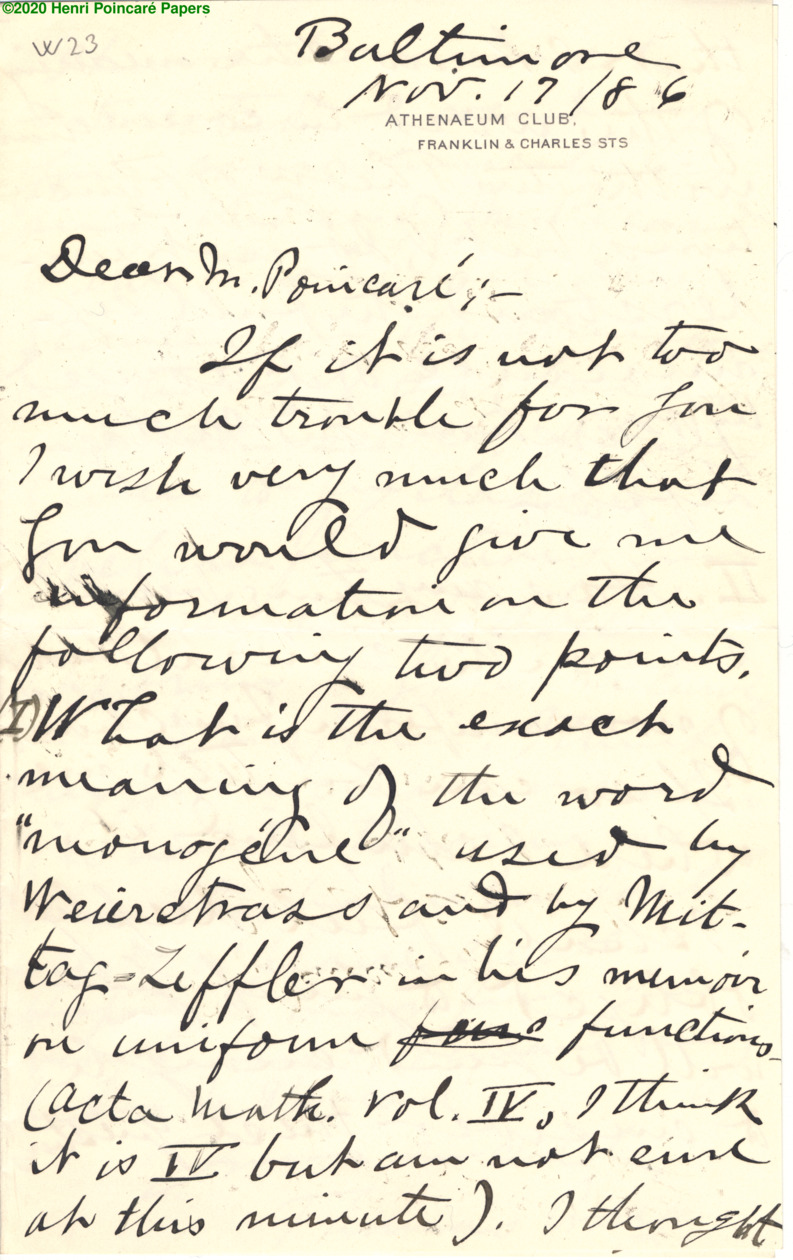 ©2020 Henri Poincaré Papers
W23
Baltimore
Nov. 17/86
ATHENAEUM CLUB,
FRANKLIN & CHARLES STS
Dear M. Poincaré;—
If it is not too
much trouble for you
I wish very much that
you would give me
information on the
following two points.
(I) What is the exact
meaning of the word
"monogéne" used by
Weierstrass and by Mit-
tag-Leffler in his memoir
on uniform functions
(Acta Math. Vol. IV, I think
it is IV but am not sure
at this minute). I thought